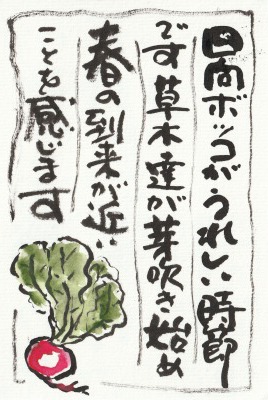 日向ボッコがうれしい時節
です草木達が芽吹き始め
春の到来が近い
ことを感じます